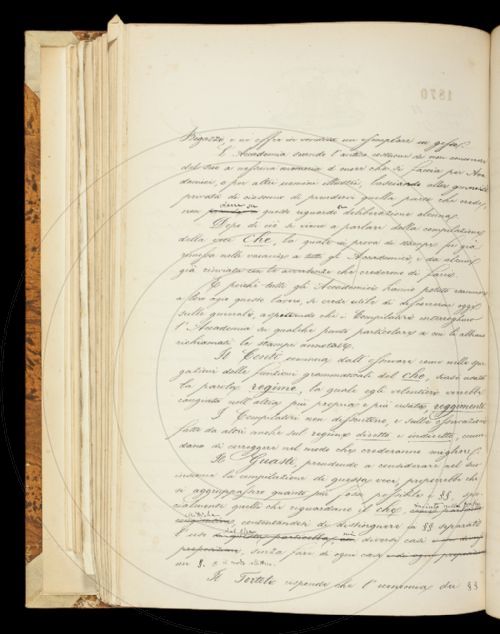 1870
Bigazzi, e ne offre in un esemplare in gesso.
L'Accademia secondo l'antico costume di non
del suo a nessuna memoria o merì che si faccia per Acca-
demici, o per altri uomini illustri, lasciando alla generosità
privata di ciascuno di prendervi quella parte che crede,
non questo riguardo deliberazione alcuna.
Dopo di ciò si viene a parlare della compilazione
della voce Che, la quale in prova di stampa fu già
nelle vacanze a tutti gli Accademici, e da alcuni
già rinviata con le avvertenze che credevano di fare.
E perchè tutti gli Accademici hanno potuto esaminare
a loro agio questo lavoro, si crede utile di discorrerne oggi
sulle generali, aspettando che i Compilatori interroghino
l'Accademia su qualche punto particolare a cui le abbiano
richiamati le stampe annotate.
Il Conti, comincia dall'osservare come nelle spie-
gazioni delle funzioni grammaticali del che, siasi usata
la parola regime, la quale egli volentieri vorrebbe
cangiata nell'altra più propria e più usata, reggimento.
I Compilatori non dissentono, e sulle osservazioni
fatte da altri anche sul regime diretto e indiretto,
dono di correggere nel modo che crederanno migliore.
Il Guasti, prendendo a considerare nel suo
insieme la compilazione di questa voce, preferirebbe che
si aggruppassero quanto più fosse possibile i §§, spe-
cialmente quelli che riguardano il che
contentandosi di distinguere in §§ separati
l'uso diversi casi
senza fare di ogni caso
un §.
Il Tortoli risponde che l'economia dei §§